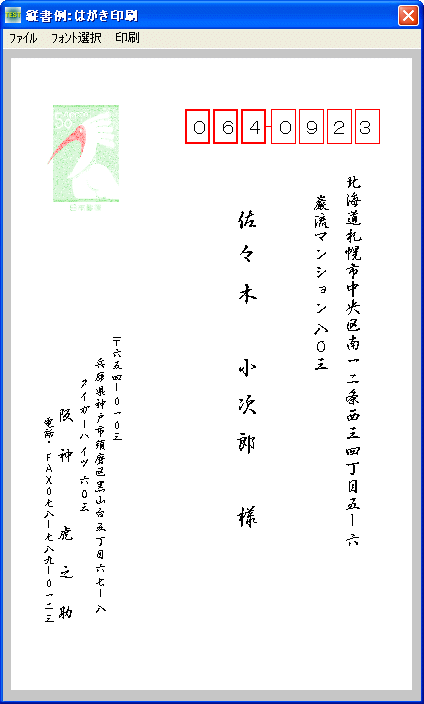 縦書例:はがき印刷
ファイル フォント選択 印刷
0640923
北海道札幌市中央区南一二条西三四丁目五ー六
巌流マンション八〇三
佐々木 小次郎 様
〒六五四ー〇一〇三
兵庫県神戸市須磨区黒山台五丁目六七ー八
タイガーハイツ六〇三
阪神 虎之助
電話・FAX〇七八ー七八九ー〇一二三
日本郵便